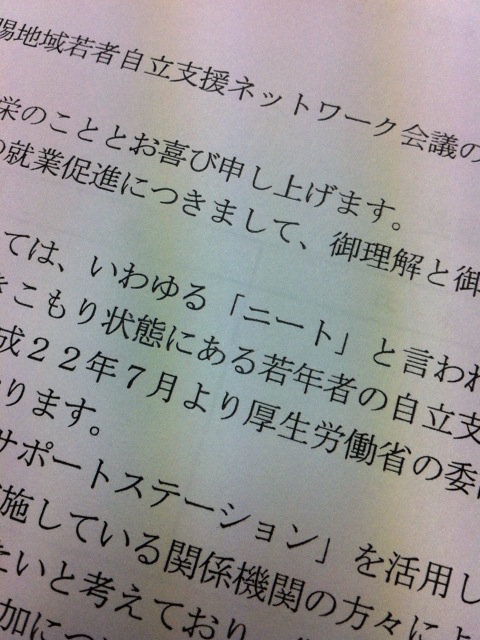 賜地域若者自立支援ネットワーク会議の
栄のこととお喜び申し上げます。
の就業促進につきまして、御理解と御
ては、いわゆる「ニート」と言われ
きこもり状態にある若年者の自立支
成２２年７月より厚生労働省の委託
ります。
サポートステーション」を活用し
施している関係機関の方々によ
たいと考えており、
加につ